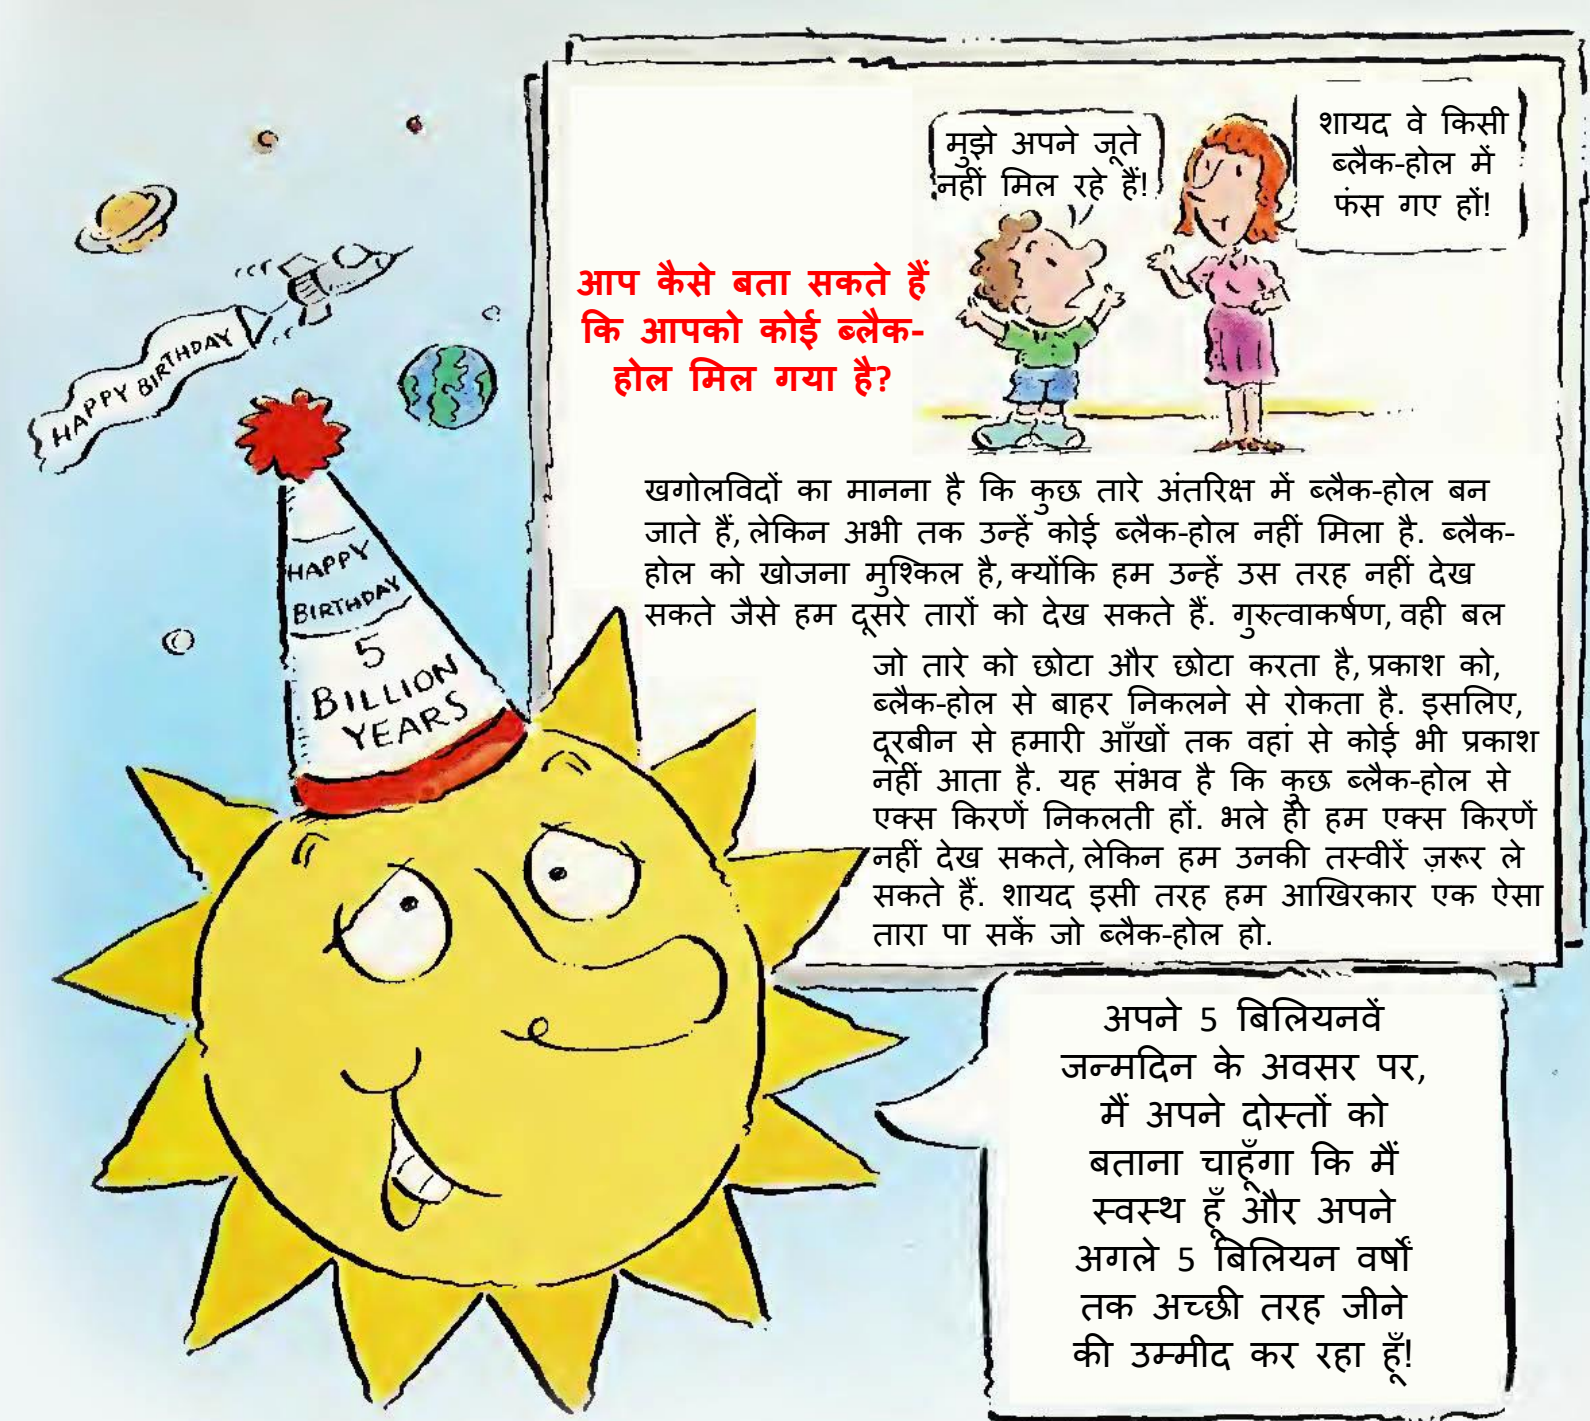 मुझे अपने जूते
नहीं मिल रहे हैं!
शायद वे किसी
ब्लैक-होल में
फंस गए हों!
आप कैसे बता सकते हैं
कि आपको कोई ब्लैक-
होल मिल गया है?
खगोलविदों का मानना है कि कुछ तारे अंतरिक्ष में ब्लैक-होल बन
जाते हैं, लेकिन अभी तक उन्हें कोई ब्लैक-होल नहीं मिला है. ब्लैक-
होल को खोजना मुश्किल है, क्योंकि हम उन्हें उस तरह नहीं देख
सकते जैसे हम दूसरे तारों को देख सकते हैं. गुरुत्वाकर्षण, वही बल
जो तारे को छोटा और छोटा करता है, प्रकाश को,
ब्लैक-होल से बाहर निकलने से रोकता है. इसलिए,
दूरबीन से हमारी आँखों तक वहां से कोई भी प्रकाश
नहीं आता है. यह संभव है कि कुछ ब्लैक-होल से
एक्स किरणें निकलती हों. भले ही हम एक्स किरणें
नहीं देख सकते, लेकिन हम उनकी तस्वीरें ज़रूर ले
सकते हैं. शायद इसी तरह हम आखिरकार एक ऐसा
तारा पा सकें जो ब्लैक-होल हो.
HAPPY BIRTHDAY
HAPPY
BIRTHDAY
5
BILLION
YEARS
अपने 5 बिलियनवें
जन्मदिन के अवसर पर,
मैं अपने दोस्तों को
बताना चाहूँगा कि मैं
स्वस्थ हूँ और अपने
अगले 5 बिलियन वर्षों
तक अच्छी तरह जीने
की उम्मीद कर रहा हूँ!